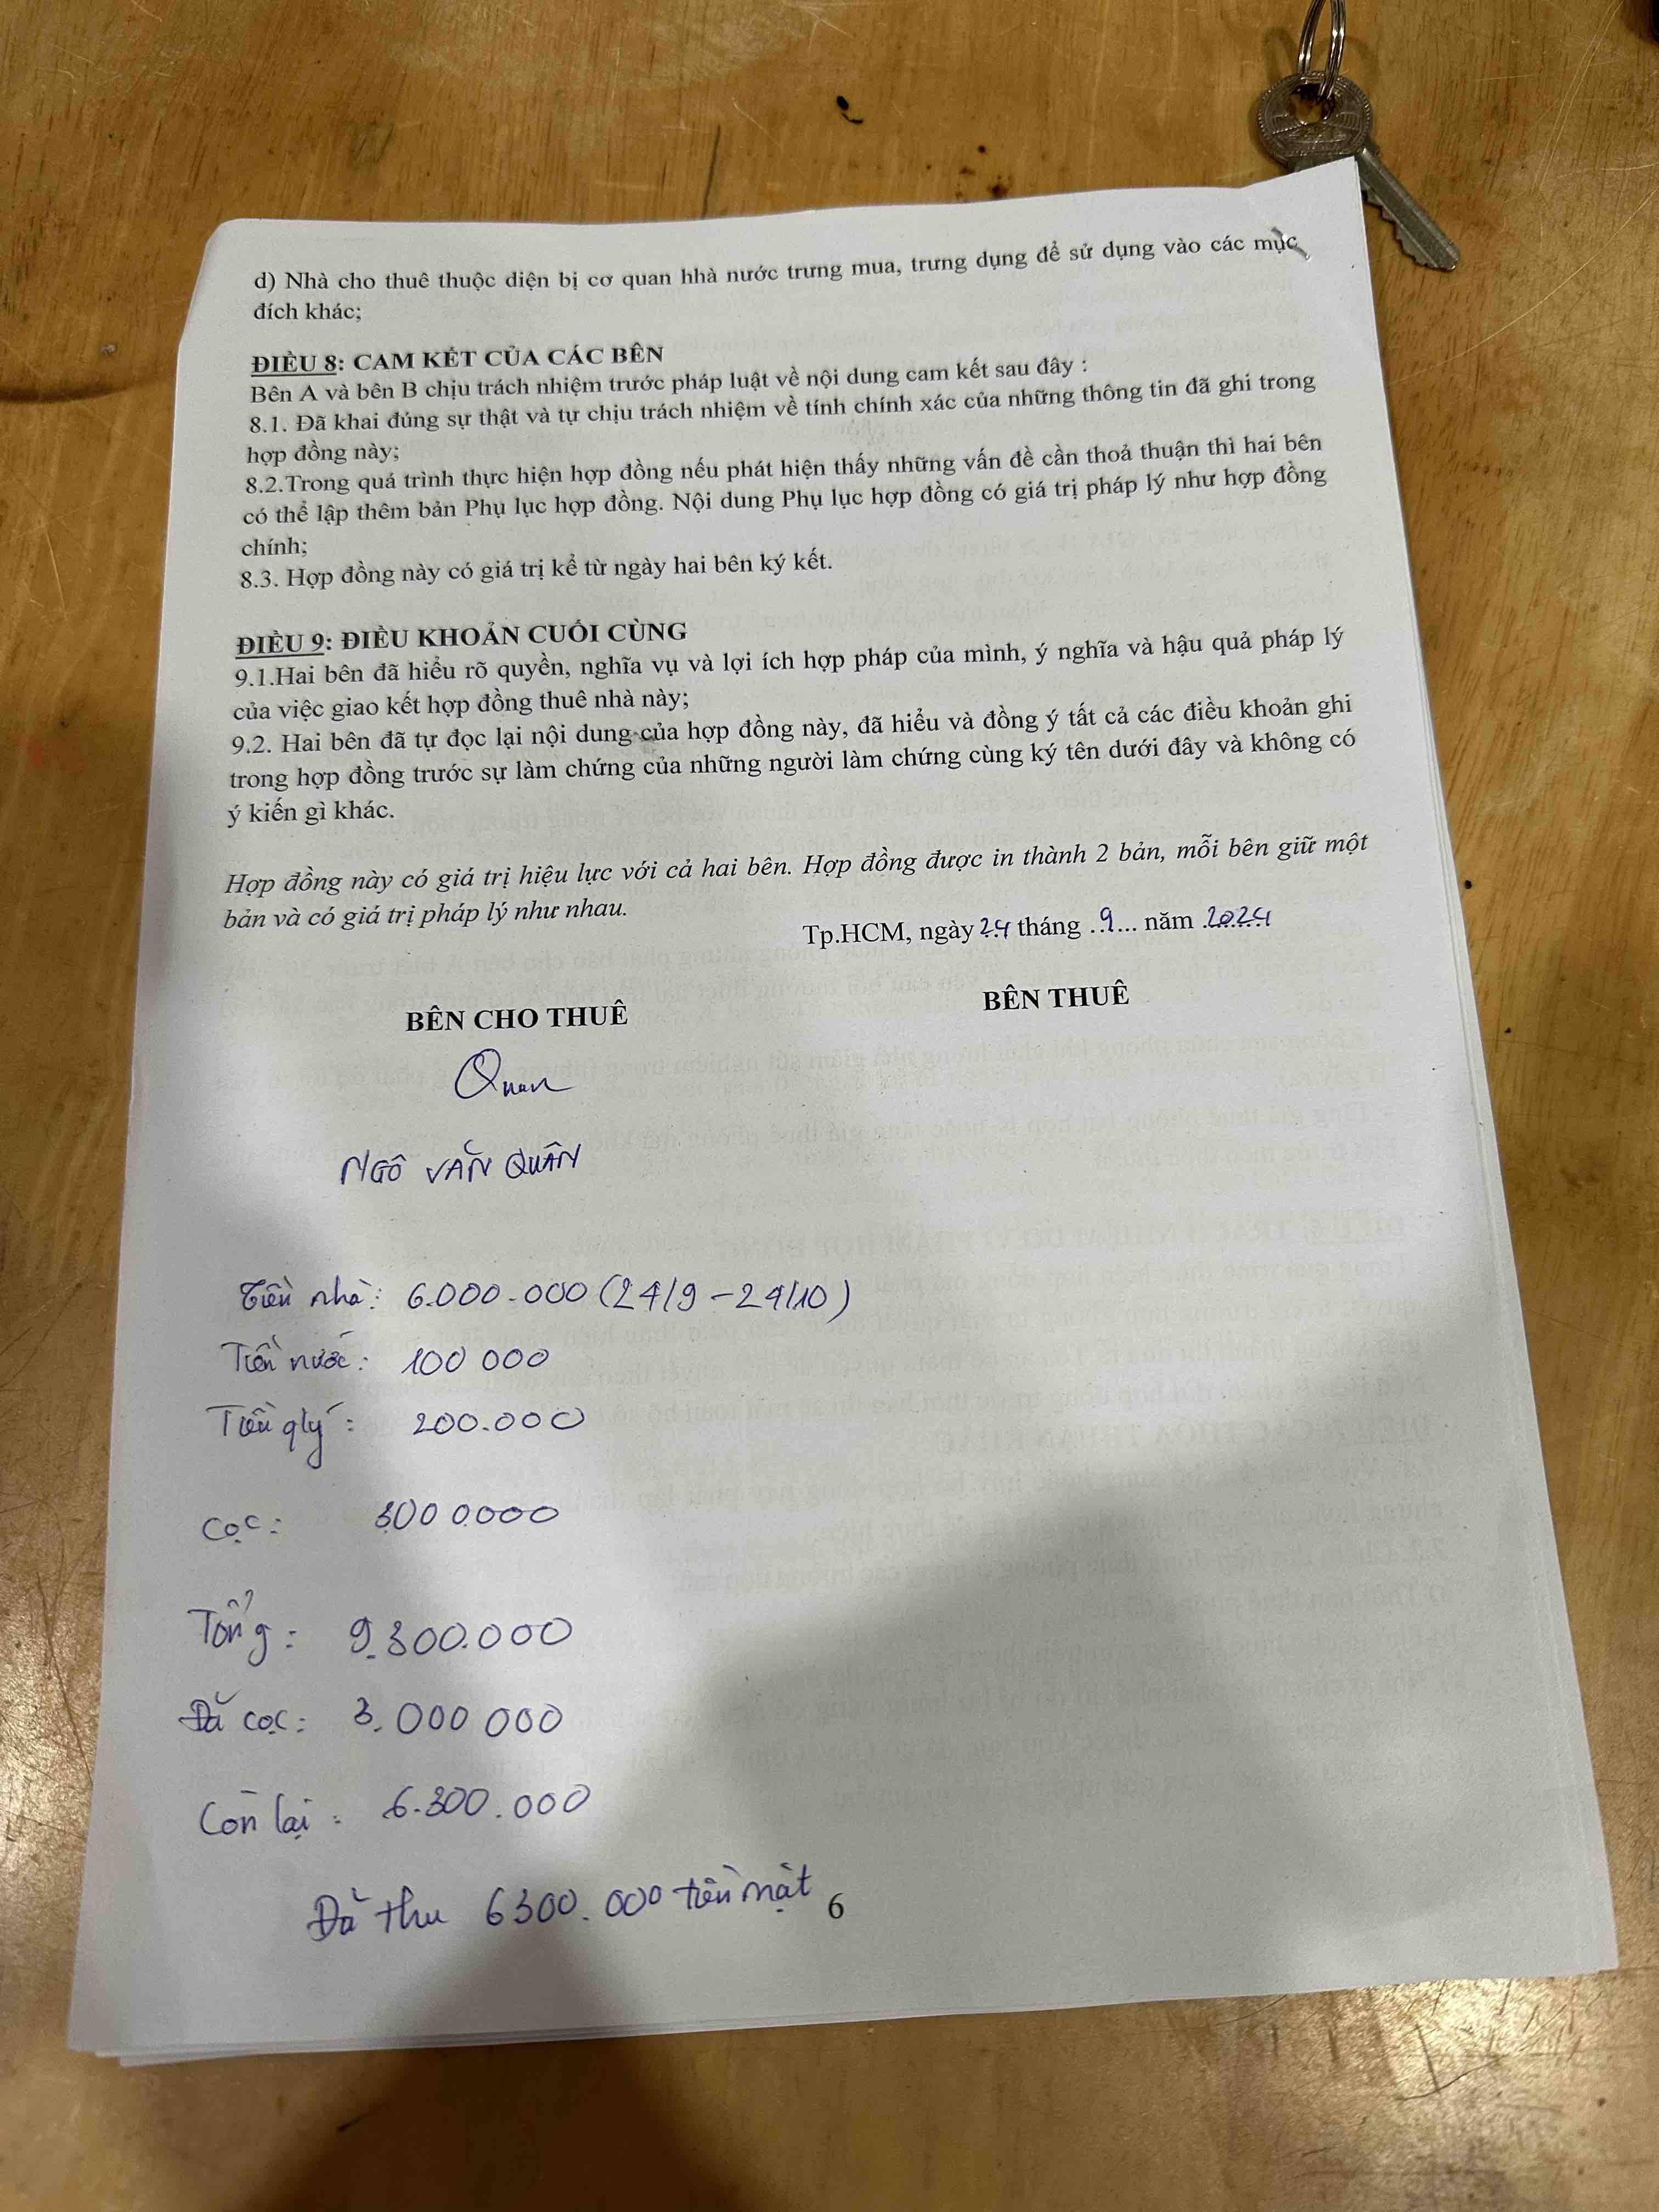 d) Nhà cho thuê thuộc diện bị cơ quan hhà nước trưng mua, trưng dụng để sử dụng vào các mục
đích khác;
ĐIỀU 8: CAM KẾT CỦA CÁC BÊN
Bên A và bên B chịu trách nhiệm trước pháp luật về nội dung cam kết sau đây :
8.1. Đã khai đúng sự thật và tự chịu trách nhiệm về tính chính xác của những thông tin đã ghi trong
hợp đồng này;
8.2.Trong quá trình thực hiện hợp đồng nếu phát hiện thấy những vấn đề cần thoả thuận thì hai bên
có thể lập thêm bản Phụ lục hợp đồng. Nội dung Phụ lục hợp đồng có giá trị pháp lý như hợp đồng
chính;
8.3. Hợp đồng này có giá trị kể từ ngày hai bên ký kết.
ĐIỀU 9: ĐIỀU KHOẢN CUỐI CÙNG
9.1.Hai bên đã hiểu rõ quyền, nghĩa vụ và lợi ích hợp pháp của mình, ý nghĩa và hậu quả pháp lý
của việc giao kết hợp đồng thuê nhà này;
9.2. Hai bên đã tự đọc lại nội dung của hợp đồng này, đã hiểu và đồng ý tất cả các điều khoản ghi
trong hợp đồng trước sự làm chứng của những người làm chứng cùng ký tên dưới đây và không có
ý kiến gì khác.
Hợp đồng này có giá trị hiệu lực với cả hai bên. Hợp đồng được in thành 2 bản, mỗi bên giữ một
bản và có giá trị pháp lý như nhau.
Tp.HCM, ngày 24 tháng ..9... năm 2024
BÊN CHO THUÊ BÊN THUÊ
Quan
NGÔ VĂN QUÂN
Tiền nhà: 6.000.000 (24/9 - 24/10)
Tiền nước: 100 000
Tiền qlý: 200.000
Cọc: 300 0.000
Tổng: 9.300.000
Đã cọc: 3.000 000
Còn lại: 6.300.000
Đã thu 6300.000 tiền mặt
6